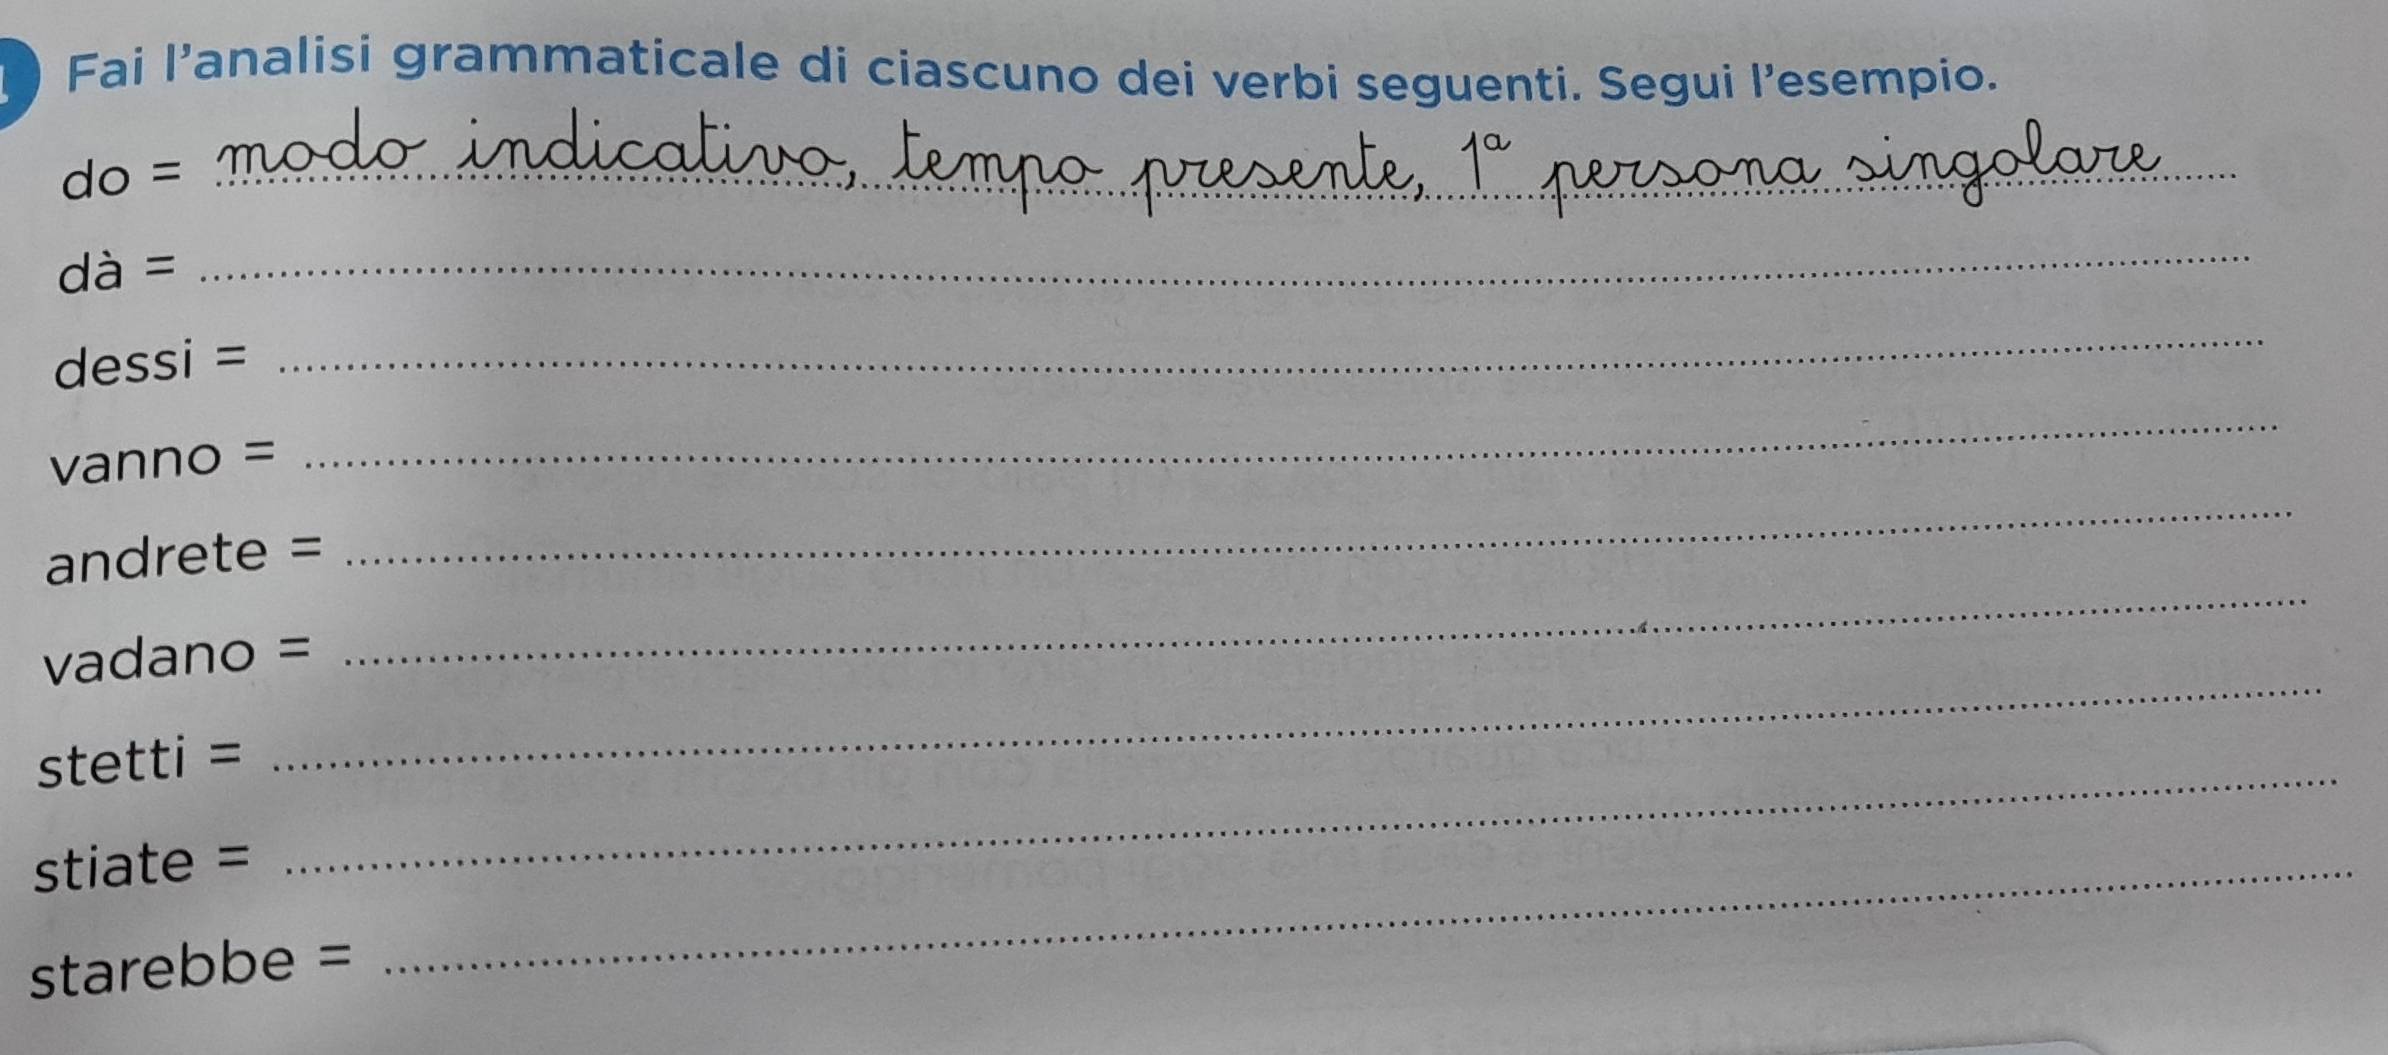 1 Fai l'analisi grammaticale di ciascuno dei verbi seguenti. Segui l'esempio.
do = modo indicativo, tempo presente, 1ª persona singolare
dà =
dessi =
vanno =
andrete =
vadano =
stetti =
stiate =
starebbe =